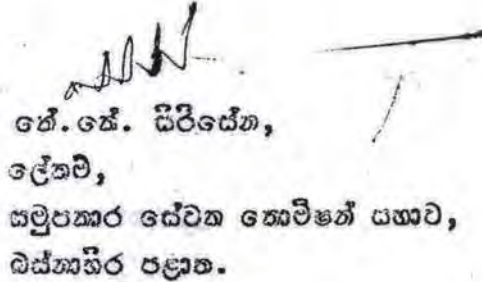 කේ.කේ. සිරිසේන,
ලේකම්,
සමුපකාර සේවක කොමිෂන් සභාව,
බස්නාහිර පළාත.